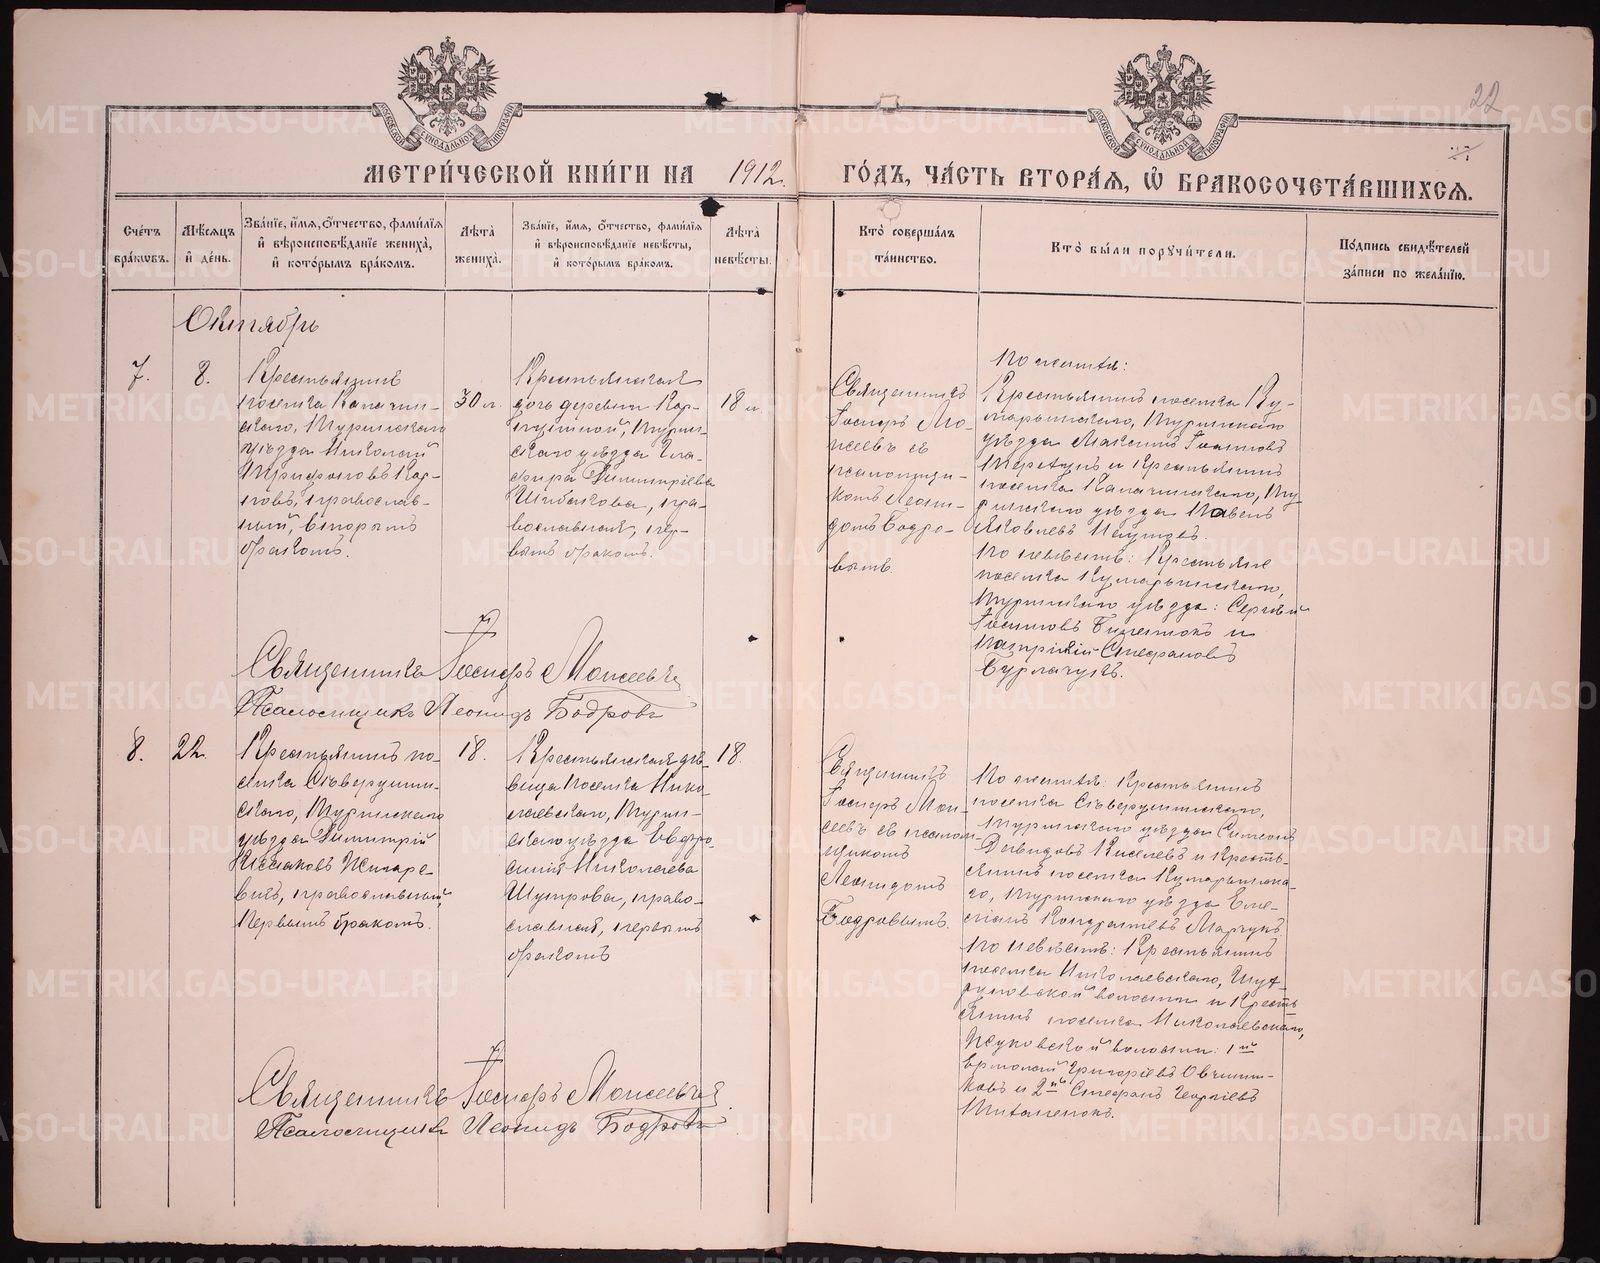 22
МЕТРИ́ЧЕСКОЙ КНИ́ГИ НА 1912
ГО́ДЪ, ЧА́СТЬ ВТОРА́Я, Ѡ҆ БРАКОСОЧЕТА́ВШИХСЯ.
Сче́тъ бра́кѡвъ.
Мѣ́сяцъ и҆ де́нь.
Зва́нїе, и҆́мя, ѻ҆́тчество, фами́лїя
и҆ вѣроисповѣ́данїе жениха̀,
и҆ кото́рымъ бра́комъ.
Лѣта̀ жениха̀.
Зва́нїе, и҆́мя, ѻ҆́тчество, фами́лїя
и҆ вѣроисповѣ́данїе невѣ́сты,
и҆ кото́рымъ бра́комъ.
Лѣта̀ невѣ́сты.
Кто̀ соверша́лъ
та́инство.
Кто̀ бы́ли порꙋчи́тели.
По́дпись свидѣ́телей
за́писи по жела́нїю.
Октябрь
7.
8.
Крестьянинъ
поселка Капачин-
скаго, Туринскаго
уѣзда Николай
Трифоновъ Кар-
повъ, православ-
ный, вторымъ
бракомъ.
30 л.
Крестьянская
дочь деревни Кор-
Турин-
скаго уѣзда Гла-
фира Димитріева
Шибакова, пра-
вославная, пер-
вымъ бракомъ.
18 л.
Священникъ
Іосифъ Мо-
исеевъ съ
псаломщи-
комъ Леони-
домъ Бодро-
вымъ.
По женихѣ:
Крестьянинъ поселка Ку-
марьинскаго, Туринскаго
уѣзда Максимъ Іоанновъ
и Крестьянинъ
поселка Капачинскаго, Ту-
ринскаго уѣзда Павелъ
Яковлевъ Наумовъ.
По невѣстѣ: Крестьяне
поселка Кумарьинскаго,
Туринскаго уѣзда: Сергѣй
и
Патрикій Стефановъ
Бурлачукъ.
Священникъ Іосифъ Моисеевъ
Псаломщикъ Леонидъ Бодровъ
8.
22.
Крестьянинъ по-
селка Сѣверушин-
скаго, Туринскаго
уѣзда Димитрій
Исааковъ Жигаре-
вичъ, православный,
первымъ бракомъ.
18.
Крестьянская дѣ-
вица поселка Нико-
лаевскаго, Турин-
скаго уѣзда Евфро-
синія Николаева
Шутрова, право-
славная, первымъ
бракомъ
18.
Священникъ
Іосифъ Мои-
сеевъ съ псалом-
щикомъ
Леонидомъ
Бодровымъ.
По женихѣ: Крестьянинъ
поселка Сѣверушинскаго,
Туринскаго уѣзда Симеонъ
Давидовъ Киселевъ и кресть-
янинъ поселка Кумарьинска-
го, Туринскаго уѣзда Еме-
ліанъ Кондратіевъ Марчукъ
По невѣстѣ: Крестьянинъ
поселка Николаевскаго,
волости и Кресть-
янинъ поселка Николаевскаго,
Жуковской волости: 1й
Ермолай Григорьевъ Овчинни-
ковъ и 2й Стефанъ Георгіевъ
Титаненокъ.
Священникъ Іосифъ Моисеевъ
Псаломщикъ Леонидъ Бодровъ
METRIKI.GASO-URAL.RU